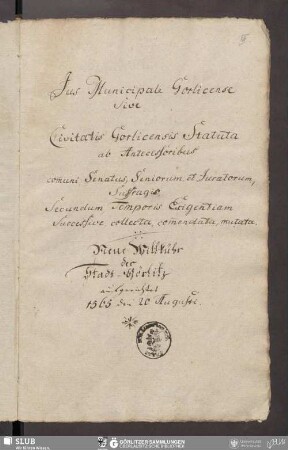 Jus Municipale Gorlicense
Sive
Civitatis Gorlicensis Statuta
ab Antecessoribus
comuni Senatus, Seniorum et Juratorum,
Suffragio
Secundum Temporis Exigentiam
Successive collecta, comendata, mutata.
Neue Willkühr
der
Stadt Görlitz
aufgerichtet
1565 den 20 Augusti.
SLUB
Wir führen Wissen.
GÖRLITZER SAMMLUNGEN
OBERLAUSITZISCHE BIBLIOTHEK